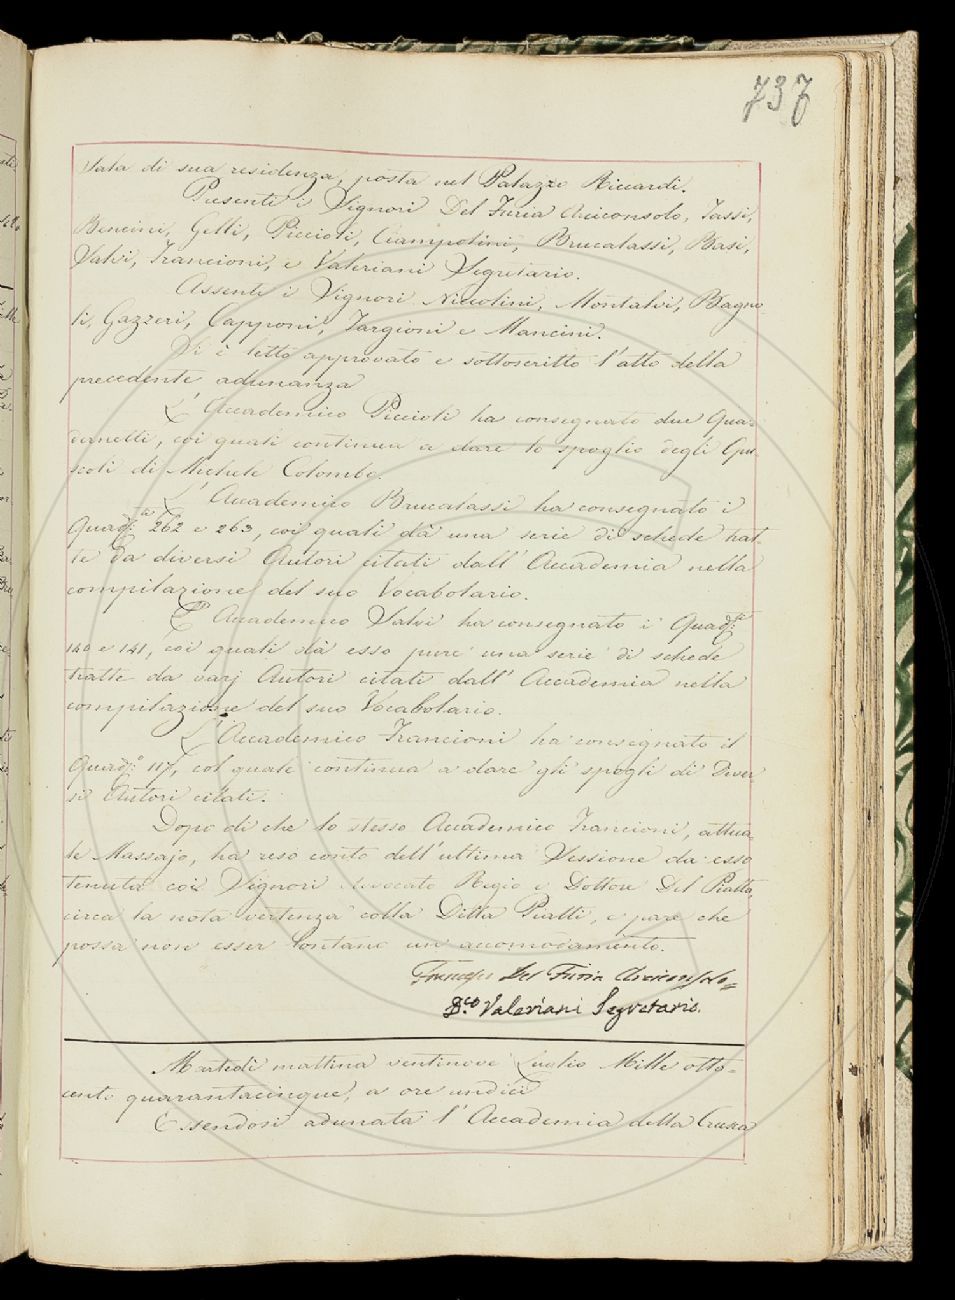 737
Sala di sua residenza, posta nel Palazzo Riccardi.
Presenti i Signori Del Furia Arciconsolo, Tassi,
Bencini, Gelli, Piccioli, Ciampolini, Brucalassi, Basi,
Salvi, Francioni, e Valeriani Segretario.
Assenti i Signori Niccolini, Montalvi, Bagno
li, Gazzeri, Capponi, Targioni e Mancini.
Si è letto approvato e sottoscritto l'atto della
precedente adunanza
L'Accademico Piccioli ha consegnato due Qua-
dernetti, coi quali continua a dare lo spoglio degli Opu-
scoli di Michele Colombo.
L'Accademico Brucalassi ha consegnato i
Quad:ni 262 e 263, coi quali dà una serie di schede trat-
te da diversi Autori citati dall'Accademia nella
compilazione del suo Vocabolario.
L'Accademico Salvi ha consegnato i Quad:ni
140 e 141, coi quali dà esso pure una serie di schede
tratte da varj Autori citati dall'Accademia nella
compilazione del suo Vocabolario.
L'Accademico Francioni ha consegnato il
Quad:o 117, col quale continua a dare gli spogli di Diver-
si Autori citati.
Dopo di che lo stesso Accademico Francioni, attua-
le Massajo, ha reso conto dell'ultima Sessione da esso
tenuta coi Signori Avvocato Regio e Dottore Del Piatta,
circa la nota vertenza colla Ditta Piatti, e pare che
possa non esser lontano un accomodamento.
Francesco Del Furia Arciconsolo=
D.co Valeriani Segretario.
Martedì mattina ventinove Luglio Mille otto-
cento quarantacinque, a ore undici
Essendosi adunata l'Accademia della Crusca